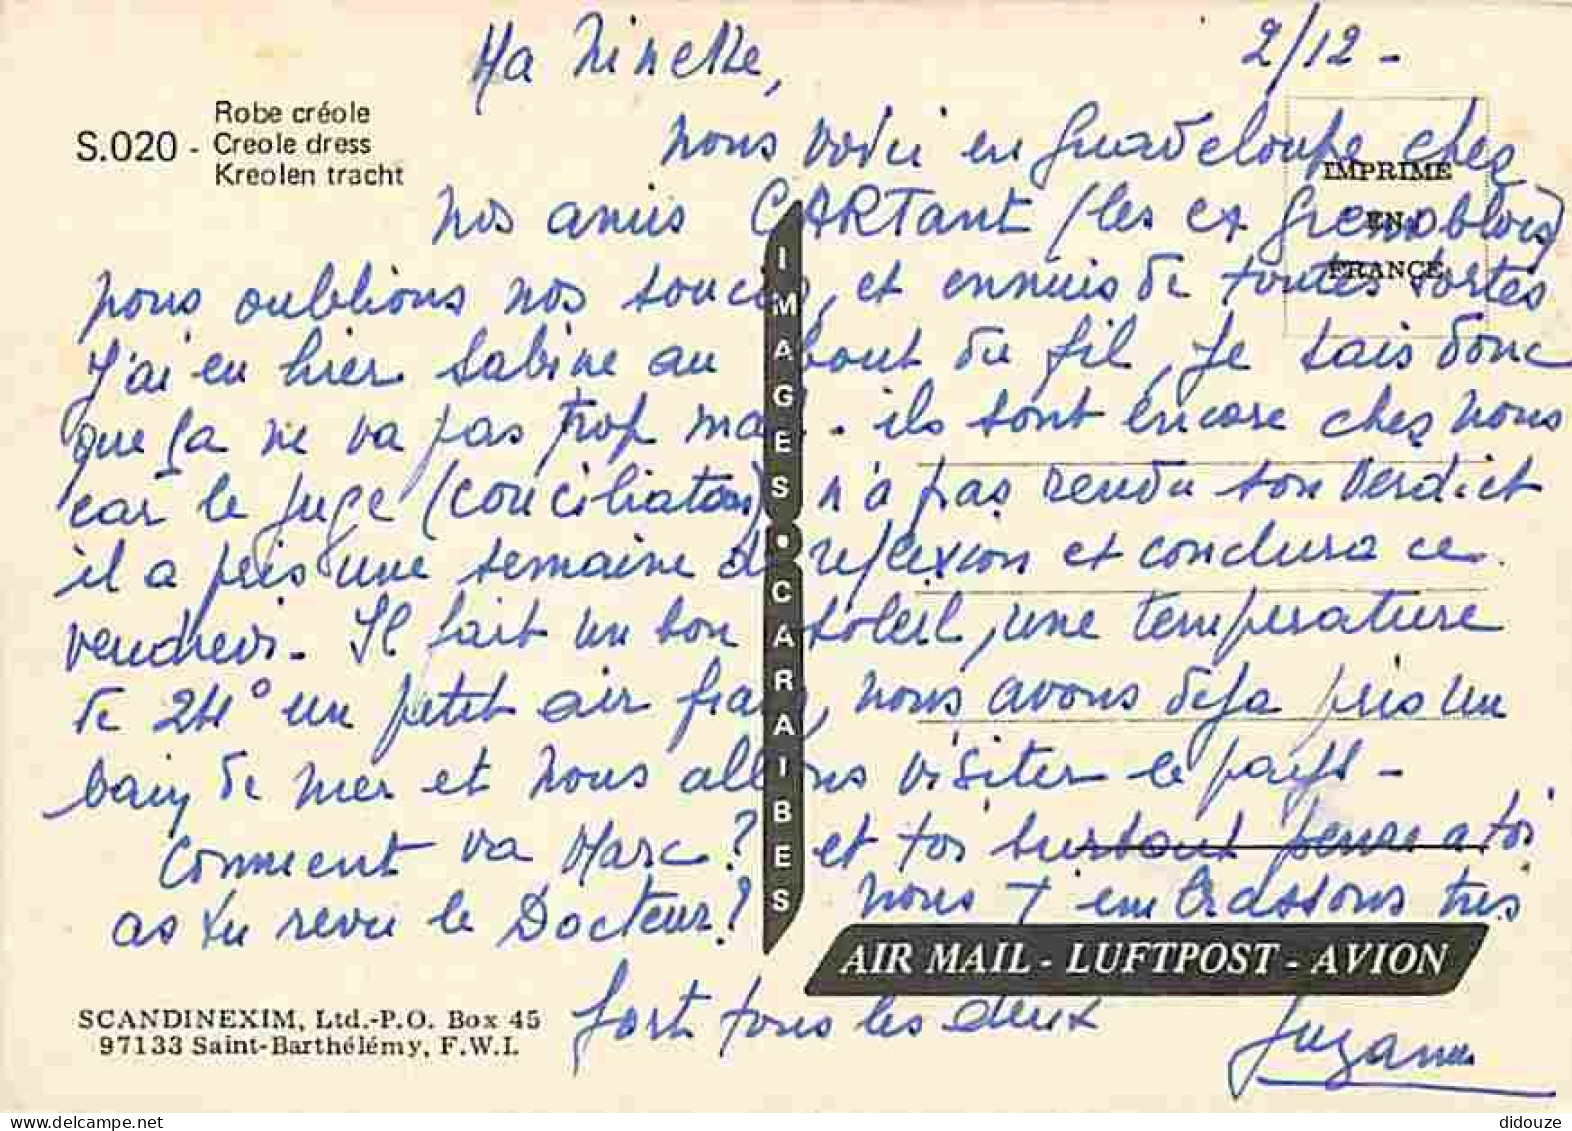 Ma Ninette,
2/12 -
Robe créole
S.020 - Creole dress
Kreolen tracht
nous voici en Guadeloupe chez
IMPRIMÉ
EN
FRANCE
nos amis CARTant (les ex Grenoblois)
nous oublions nos soucis, et ennuis de toutes sortes
J'ai eu hier Sabine au bout du fil, Je sais donc
que ça ne va pas trop mal. ils sont encore chez nous
car le juge (conciliation) n'a pas rendu son verdict
il a pris une semaine de reflexion et conclura ce
vendredi. Il fait un bon soleil, une temperature
de 24° un petit air frais, nous avons deja pris un
bain de mer et nous allons visiter le pays -
Comment va Marc ? et toi surtout pense a toi
as tu revu le Docteur ? nous t'embrassons très
fort tous les deux
Suzanne
IMAGES • CARAIBES
AIR MAIL - LUFTPOST - AVION
SCANDINEXIM, Ltd.-P.O. Box 45
97133 Saint-Barthélémy, F.W.I.
didouze